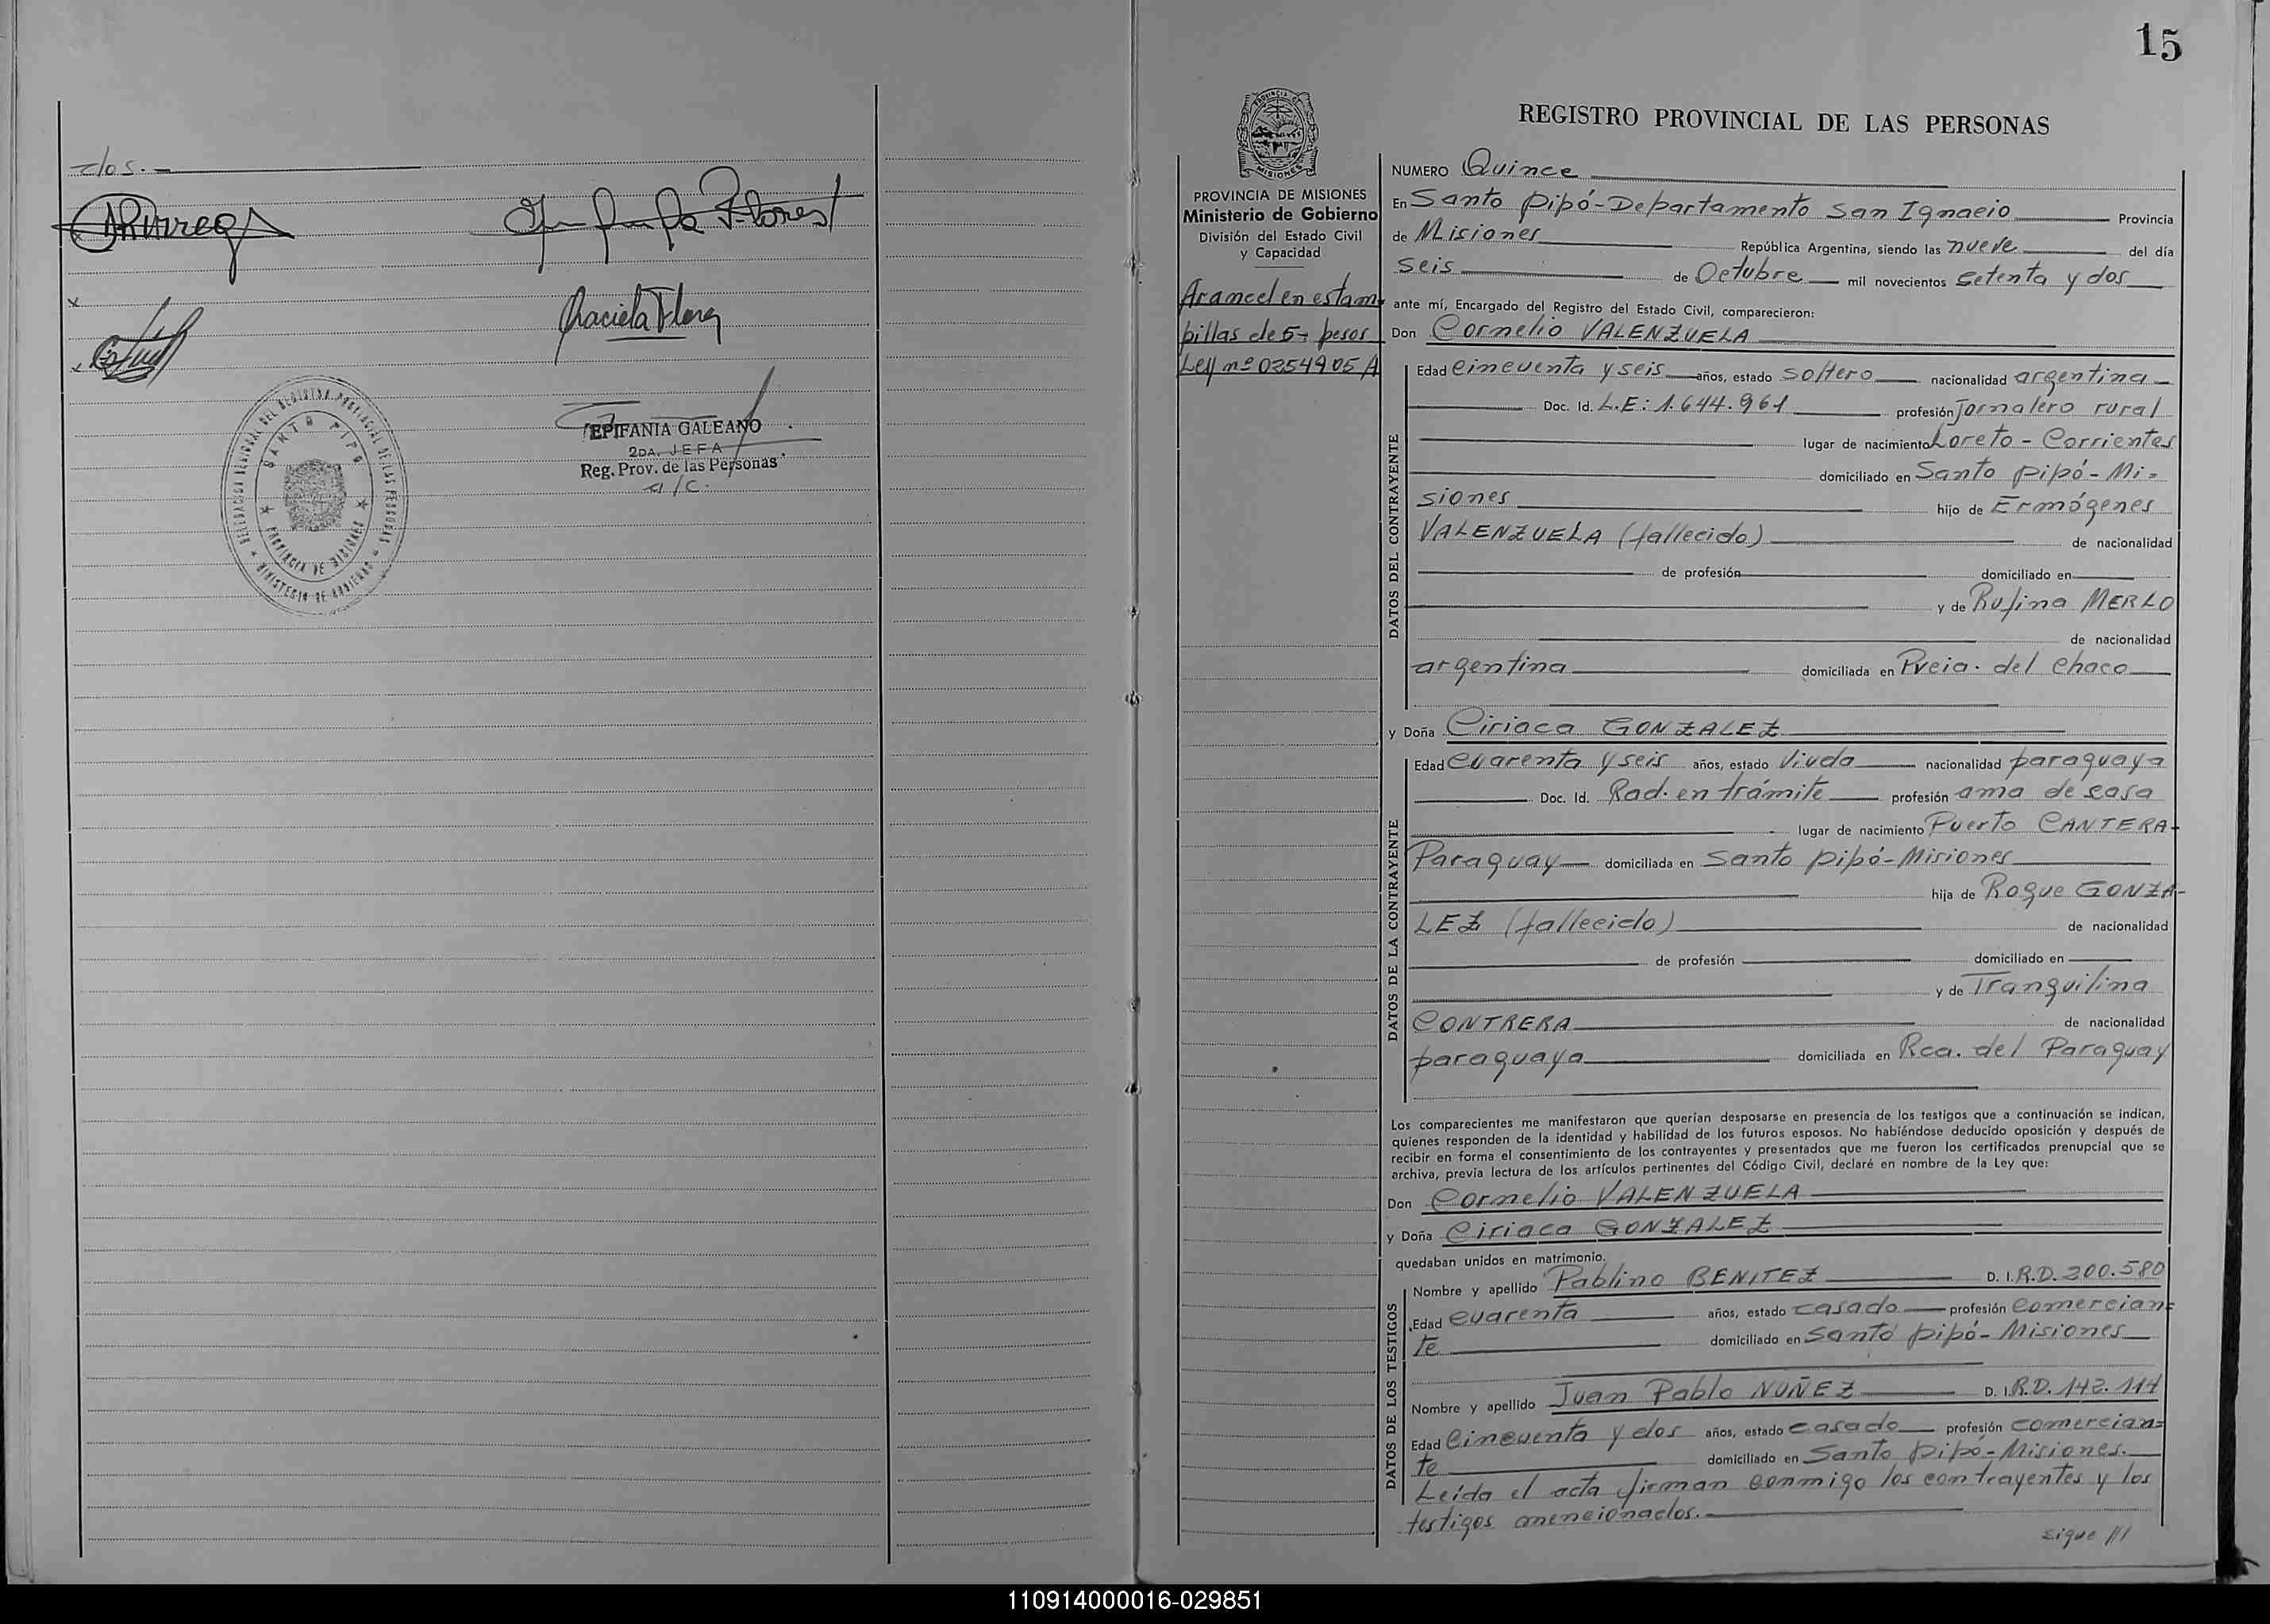 dos.-
Graciela Flores
DELEGACION REGIONAL DEL REGISTRO PROVINCIAL DE LAS PERSONAS
SANTO PIPO
PROVINCIA DE MISIONES
MINISTERIO DE GOBIERNO
EPIFANIA GALEANO
2DA. JEFA
Reg. Prov. de las Personas
a/c.
15
PROVINCIA DE MISIONES
PROVINCIA DE MISIONES
Ministerio de Gobierno
División del Estado Civil
y Capacidad
Arancel en estam-
pillas de 5- pesos
Ley nº 0254905 A
REGISTRO PROVINCIAL DE LAS PERSONAS
NUMERO Quince
En Santo Pipó-Departamento San Ignacio Provincia
de Misiones República Argentina, siendo las nueve del día
seis de Octubre mil novecientos setenta y dos
ante mí, Encargado del Registro del Estado Civil, comparecieron:
Don Cornelio VALENZUELA
DATOS DEL CONTRAYENTE
Edad cincuenta y seis años, estado soltero nacionalidad argentina
Doc. Id. L.E: 1.644.961 profesión jornalero rural
lugar de nacimiento Loreto - Corrientes
domiciliado en Santo Pipó- Mi=
siones hijo de Ermógenes
VALENZUELA (fallecido) de nacionalidad
de profesión domiciliado en
y de Rufina MERLO
de nacionalidad
argentina domiciliada en Pvcia. del Chaco
y Doña Ciriaca GONZALEZ
DATOS DE LA CONTRAYENTE
Edad cuarenta y seis años, estado viuda nacionalidad paraguaya
Doc. Id. Rad. en trámite profesión ama de casa
lugar de nacimiento Puerto CANTERA-
Paraguay domiciliada en Santo Pipó-Misiones
hija de Roque GONZA-
LEZ (fallecido) de nacionalidad
de profesión domiciliado en
y de Tranquilina
CONTRERA de nacionalidad
paraguaya domiciliada en Rca. del Paraguay
Los comparecientes me manifestaron que querían desposarse en presencia de los testigos que a continuación se indican,
quienes responden de la identidad y habilidad de los futuros esposos. No habiéndose deducido oposición y después de
recibir en forma el consentimiento de los contrayentes y presentados que me fueron los certificados prenupcial que se
archiva, previa lectura de los artículos pertinentes del Código Civil, declaré en nombre de la Ley que:
Don Cornelio VALENZUELA
y Doña Ciriaca GONZALEZ
quedaban unidos en matrimonio.
DATOS DE LOS TESTIGOS
Nombre y apellido Pablino BENITEZ D. I. R.D. 200.580
Edad cuarenta años, estado casado profesión comercian=
te domiciliado en Santo Pipó-Misiones
Nombre y apellido Juan Pablo NUÑEZ D. I. R.D. 142.114
Edad Cincuenta y dos años, estado casado profesión comercian=
te domiciliado en Santo Pipó-Misiones.
Leída el acta firman conmigo los contrayentes y los
testigos mencionados.-
sigue ///
110914000016-029851